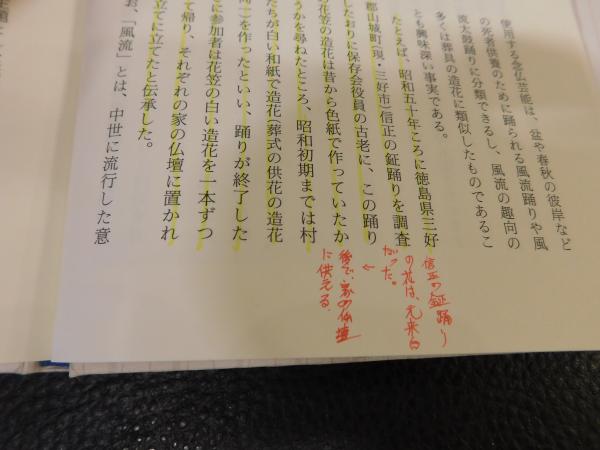 使用する念仏芸能は、盆や春秋の彼岸など
の死者供養のために踊られる風流踊りや風
流太鼓踊りに分類できるし、風流の趣向の
多くは葬具の造花に類似したものであるこ
とも興味深い事実である。
たとえば、昭和五十年ころに徳島県三好
郡山城町(現・三好市)信正の鉦踊りを調査
したおりに保存会役員の古老に、この踊り
花笠の造花は昔から色紙で作っていたか
うかを尋ねたところ、昭和初期までは村
たちが白い和紙で造花(葬式の供花の造花
)を作ったといい、踊りが終了した
に参加者は花笠の白い造花を一本ずつ
て帰り、それぞれの家の仏壇に置かれ
立てに立てたと伝承した。
お、「風流」とは、中世に流行した意
信正の鉦踊り
の花は、元来白
だった。
←
後で、家の仏壇
に供える。